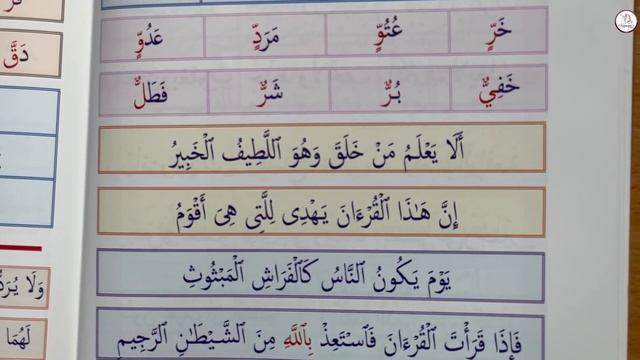 خَرٍّ عُتُوٍّ مَرَدٍّ عَدُوٍّ
خَفِيٌّ بُرٌّ شَرٌّ فَطَلٌّ
أَلَا يَعْلَمُ مَنْ خَلَقَ وَهُوَ ٱللَّطِيفُ ٱلْخَبِيرُ
إِنَّ هَٰذَا ٱلْقُرْءَانَ يَهْدِى لِلَّتِى هِىَ أَقْوَمُ
يَوْمَ يَكُونُ ٱلنَّاسُ كَٱلْفَرَاشِ ٱلْمَبْثُوثِ
فَإِذَا قَرَأْتَ ٱلْقُرْءَانَ فَٱسْتَعِذْ بِٱللَّهِ مِنَ ٱلشَّيْطَٰنِ ٱلرَّجِيمِ
دَقَّ
وَلَا
لَهُمَا